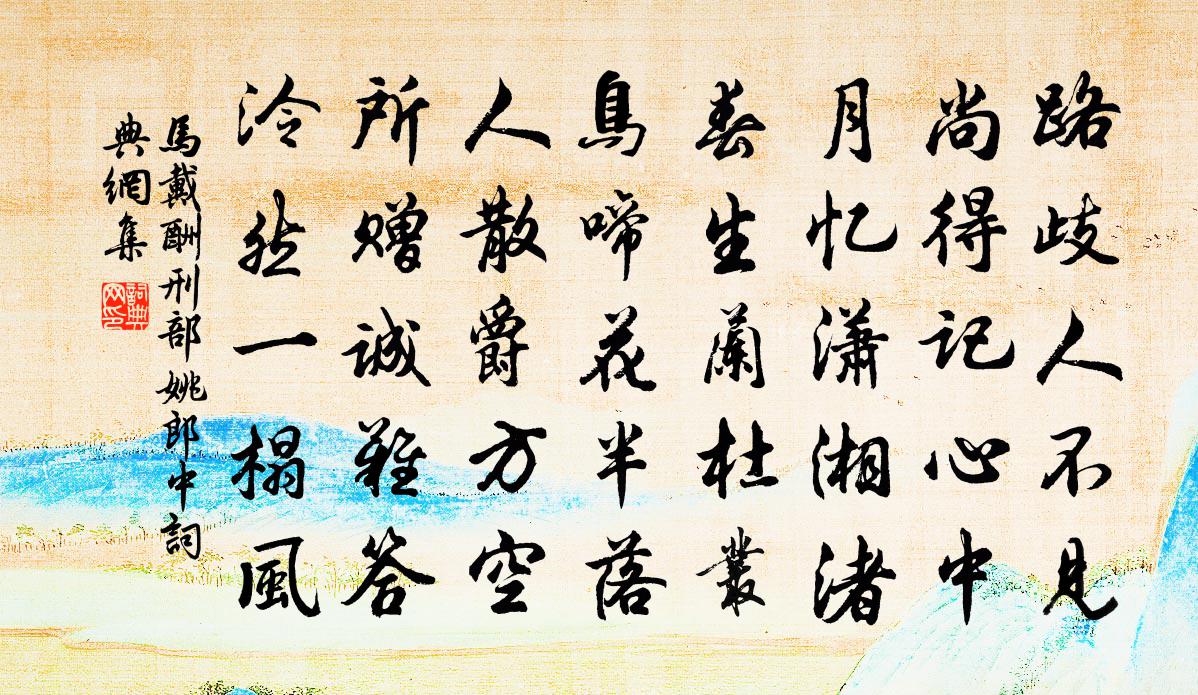 路歧人不見
尚得記心中
月忆瀟湘渚
春生蘭杜叢
鳥啼花半落
人散爵方空
所贈誠難答
泠然一榻風
馬戴酬刑部姚郎中詞
典網集
詞典
网印